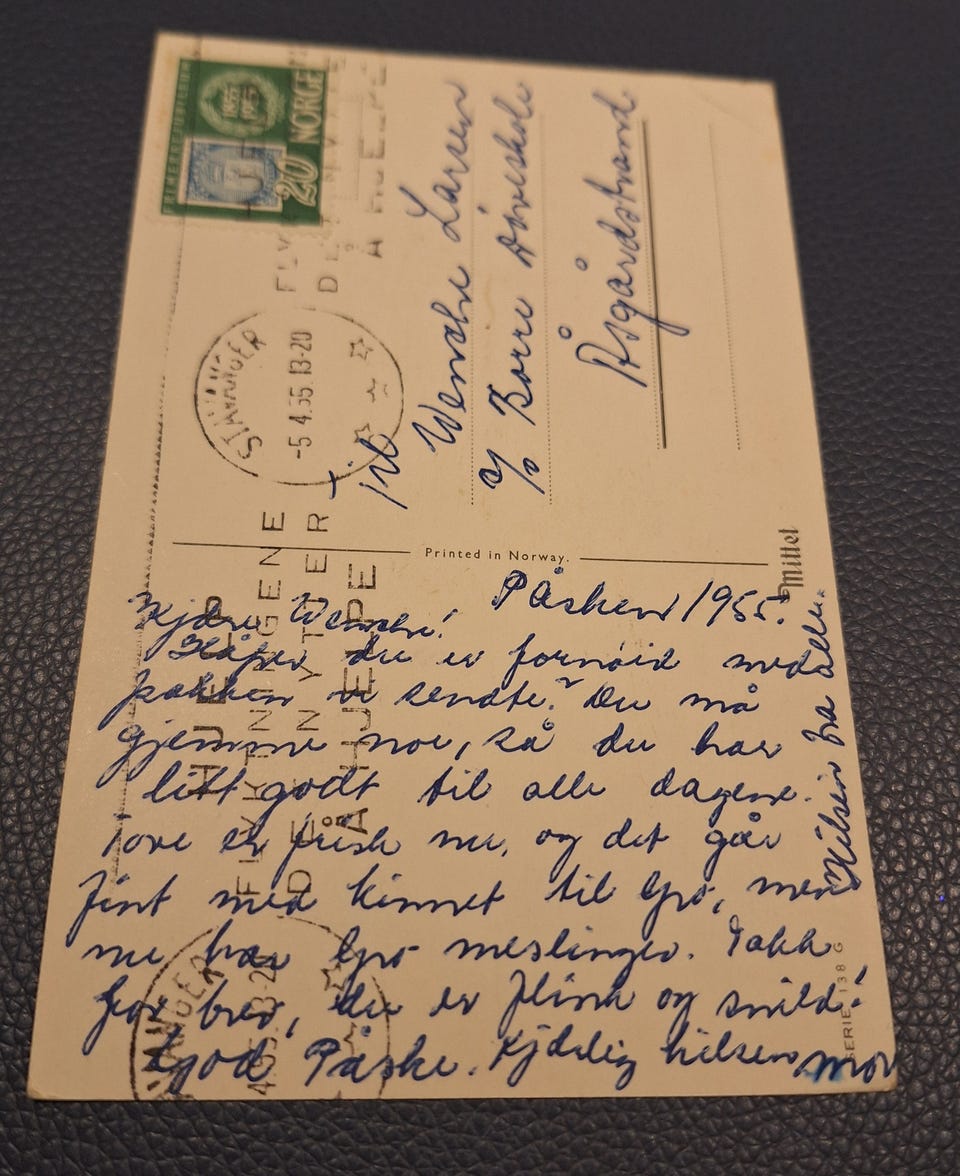 Påsken 1955.
Kjære Wenche!
Håper du er fornøid med
pakken vi sendte? Du må
gjemme noe, så du har
litt godt til alle dagene.
Tove er frisk nu, og det går
fint med kinnet til Gro, men
nu har Gro meslinger. Takk
for brev, du er flink og snild!
God Påske. Kjærlig hilsen mor
Hilsen fra alle.
Printed in Norway.
Mittet
SERIE 138 G
Til
Wenche Larsen
c/o Borre Døveskole
Åsgårdstrand
FRIMERKEJUBILEUM
1855
1955
NORGE
20
STAVANGER
-5 4.55.13-20
HJELP
FLYKTNINGENE
DE NYTTER
Å HJELPE